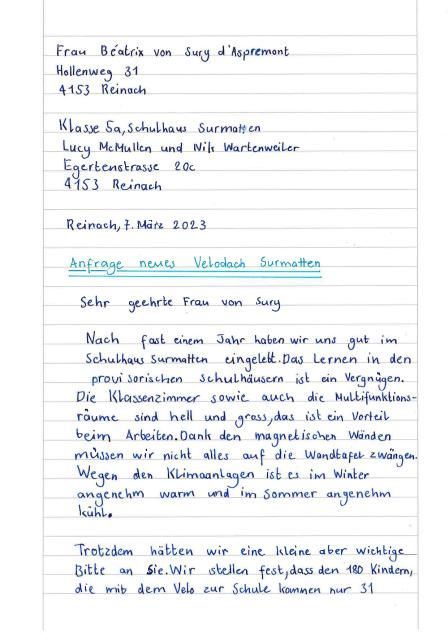 Frau Béatrix von Sury d'Aspremont
Hollenweg 31
4153 Reinach
Klasse 5a, Schulhaus Surmatten
Lucy McMullen und Nils Wartenweiler
Egertenstrasse 20c
4153 Reinach
Reinach, 7. März 2023
Anfrage neues Velodach Surmatten
Sehr geehrte Frau von Sury
Nach fast einem Jahr haben wir uns gut im
Schulhaus Surmatten eingelebt. Das Lernen in den
provisorischen Schulhäusern ist ein Vergnügen.
Die Klassenzimmer sowie auch die Multifunktions-
räume sind hell und gross, das ist ein Vorteil
beim Arbeiten. Dank den magnetischen Wänden
müssen wir nicht alles auf die Wandtafel zwängen.
Wegen den Klimaanlagen ist es im Winter
angenehm warm und im Sommer angenehm
kühl.
Trotzdem hätten wir eine kleine aber wichtige
Bitte an Sie. Wir stellen fest, dass den 180 Kindern,
die mit dem Velo zur Schule kommen nur 31